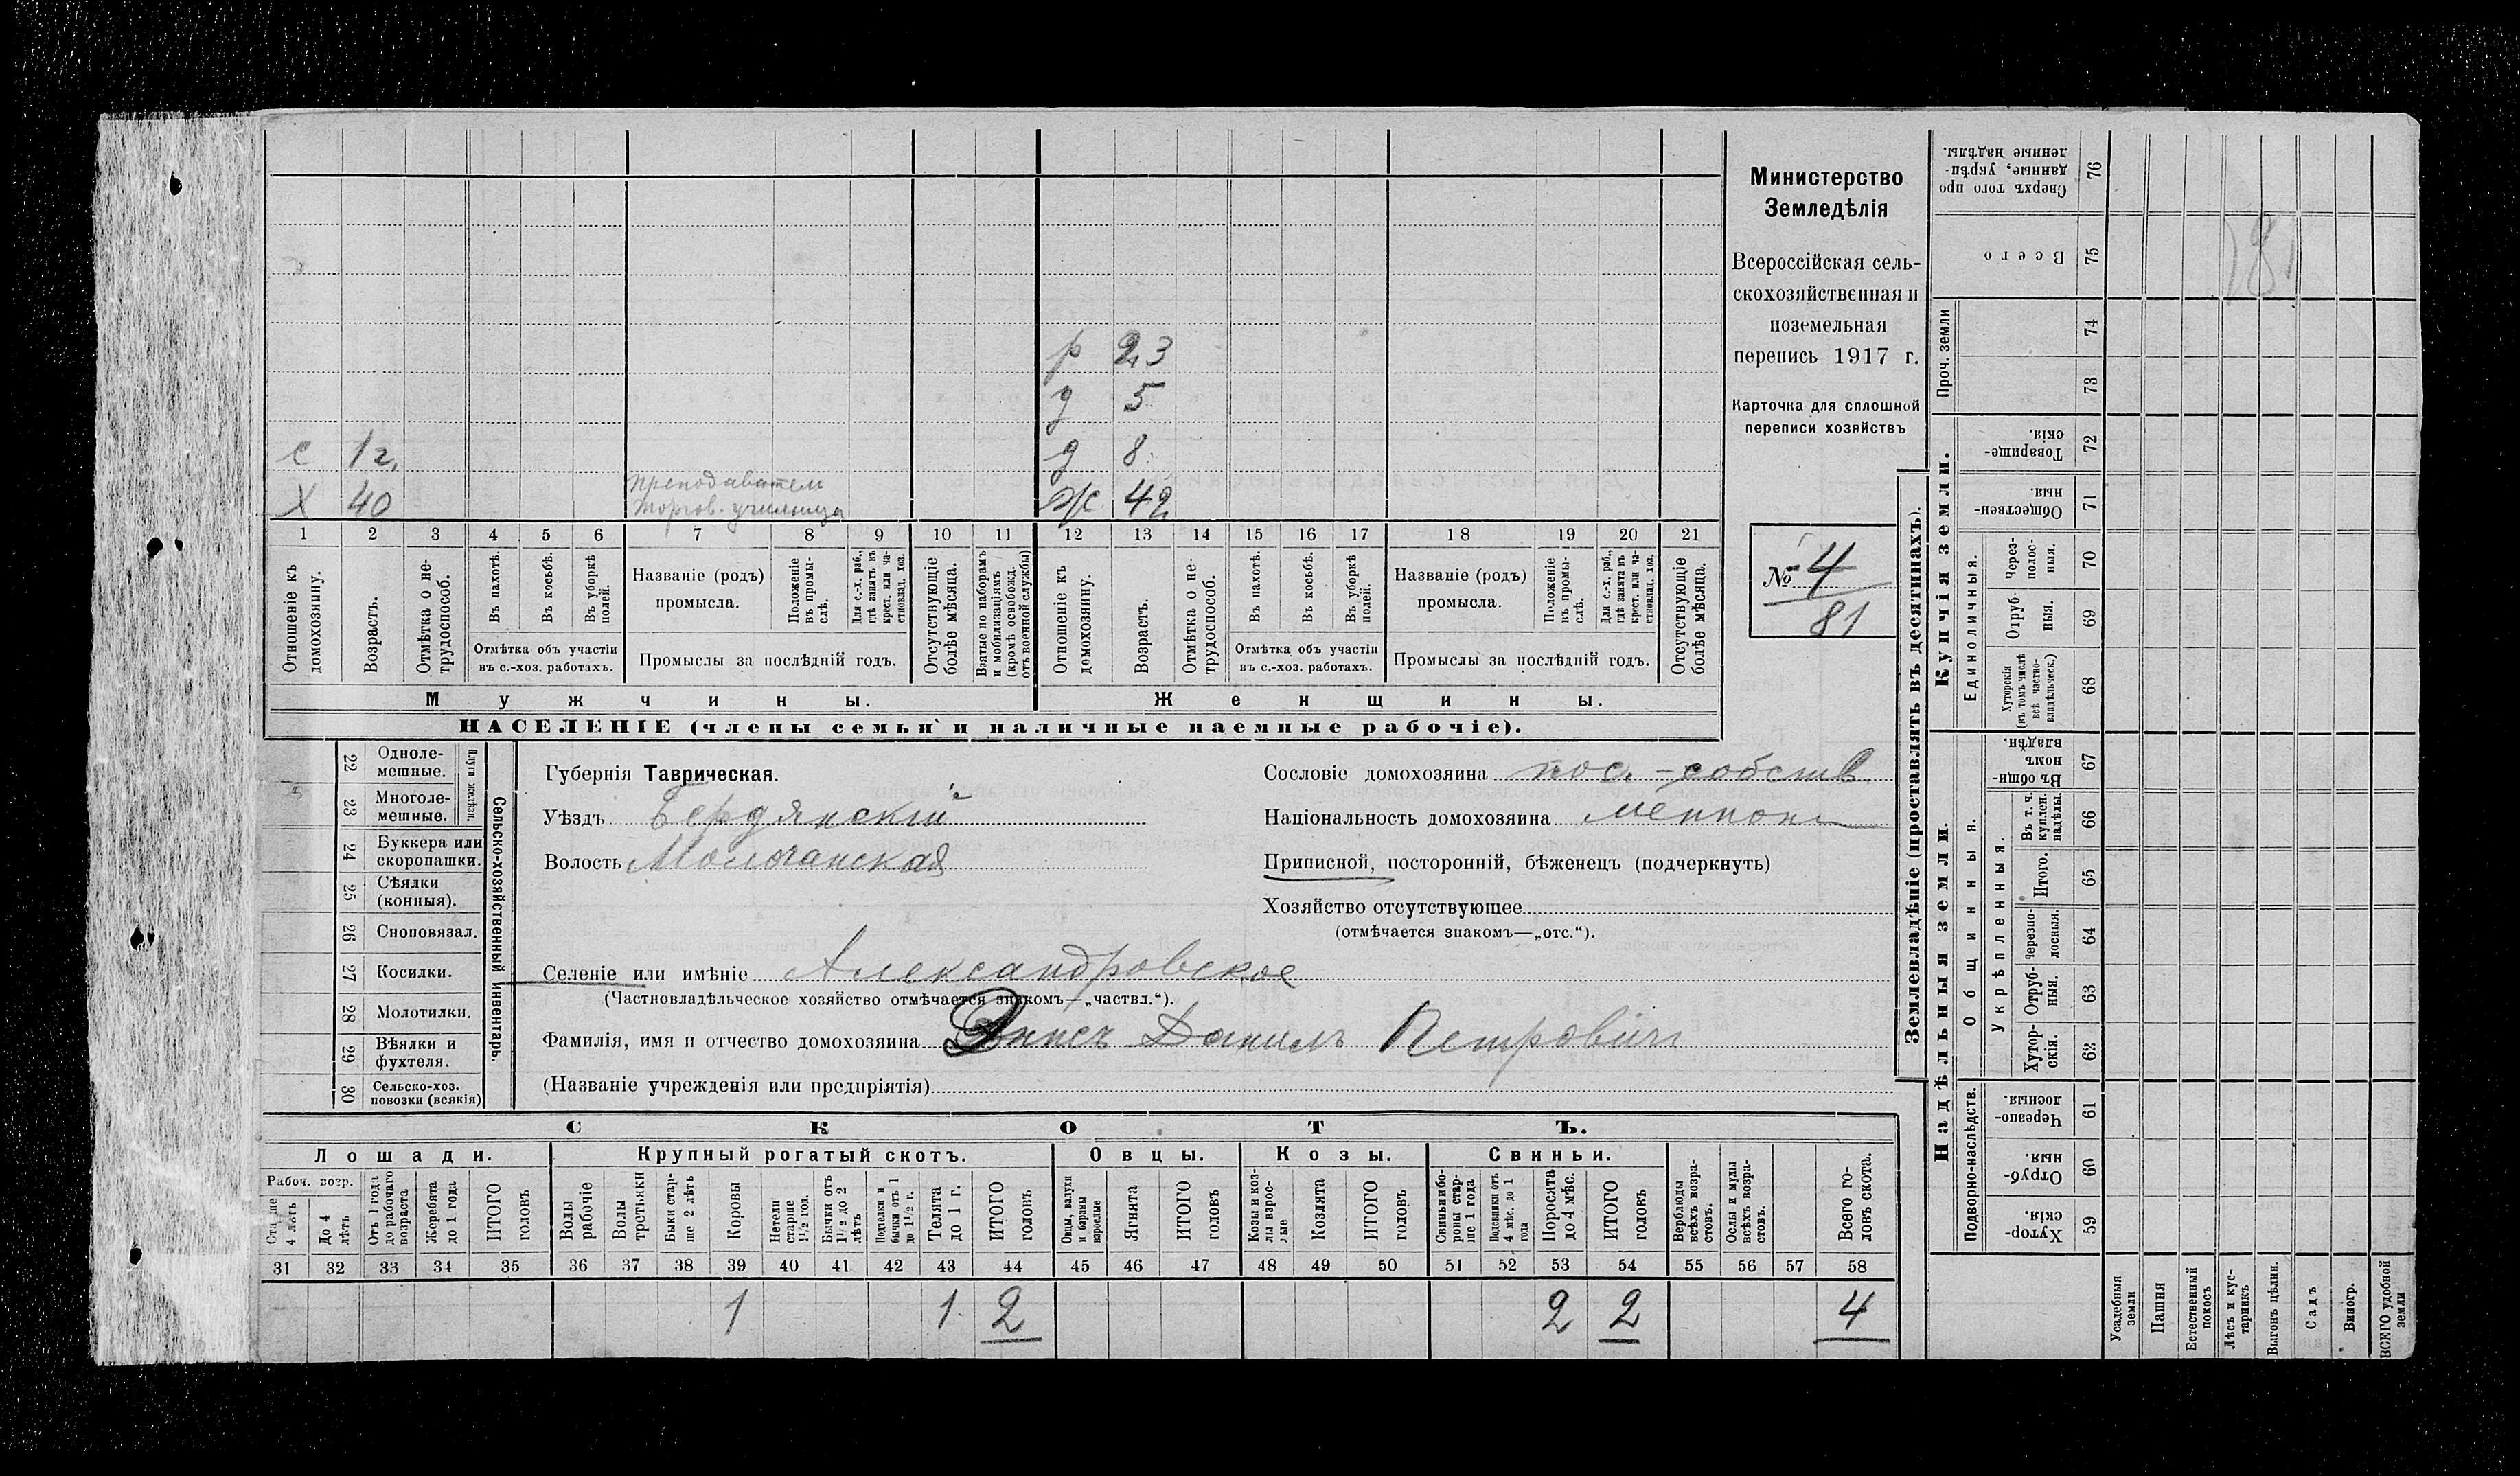 Министерство
Земледѣлія
Всероссійская сель-
скохозяйственная и
поземельная
перепись 1917 г.
Карточка для сплошной
переписи хозяйствъ
№ 4
81
р 23
д 5
с 1 г. д 8
Х 40 преподаватель торгов. училища ж 42
1 2 3 4 5 6 7 8 9 10 11 12 13 14 15 16 17 18 19 20 21
Отношеніе къ домохозяину.
Возрастъ.
Отмѣтка о не-трудоспособ.
Въ пахотѣ.
Въ косьбѣ.
Въ уборкѣ полей.
Отмѣтка объ участіи
въ с.-хоз. работахъ.
Названіе (родъ)
промысла.
Положеніе въ промы-слѣ.
Для с.-х. раб., гдѣ занятъ въ крест. или ча-стновлад. хоз.
Промыслы за послѣдній годъ.
Отсутствующіе болѣе мѣсяца.
Взятые по наборамъ и мобилизаціямъ (кромѣ освобожд. отъ военной службы)
Отношеніе къ домохозяину.
Возрастъ.
Отмѣтка о не-трудоспособ.
Въ пахотѣ.
Въ косьбѣ.
Въ уборкѣ полей.
Отмѣтка объ участіи
въ с.-хоз. работахъ.
Названіе (родъ)
промысла.
Положеніе въ промы-слѣ.
Для с.-х. раб., гдѣ занята въ крест. или ча-стновлад. хоз.
Промыслы за послѣдній годъ.
Отсутствующіе болѣе мѣсяца.
Мужчины. Женщины.
НАСЕЛЕНІЕ (члены семьи и наличные наемные рабочіе).
22 Одноле-мешные.
23 Многоле-мешные.
Плуги желѣзн.
24 Буккера или скоропашки.
25 Сѣялки (конныя).
26 Сноповязал.
27 Косилки.
28 Молотилки.
29 Вѣялки и фухтеля.
30 Сельско-хоз. повозки (всякія)
Сельско-хозяйственный инвентарь.
Губернія Таврическая.
Уѣздъ Бердянскій
Волость Молочанская
Сословіе домохозяина пос.-собств
Національность домохозяина меннон
Приписной, посторонній, бѣженецъ (подчеркнуть)
Хозяйство отсутствующее
(отмѣчается знакомъ—„отс.“).
Селеніе или имѣніе Александровское
(Частновладѣльческое хозяйство отмѣчается знакомъ—„частвл.“).
Фамилія, имя и отчество домохозяина Данилъ Петровичъ
(Названіе учрежденія или предпріятія)
СКОТЪ.
Лошади. Крупный рогатый скотъ. Овцы. Козы. Свиньи.
Рабоч. возр.
Старше 4 лѣтъ
До 4 лѣтъ
Отъ 1 года до рабочаго возраста
Жеребята до 1 года
ИТОГО головъ
Волы рабочіе
Волы третьяки
Быки стар-ше 2 лѣтъ
Коровы
Нетели старше 1½ год.
Бычки отъ 1½ до 2 лѣтъ
Подтелки и бычки отъ 1 до 1½ г.
Телята до 1 г.
ИТОГО головъ
Овцы, валухи и бараны взрослые
Ягнята
ИТОГО головъ
Козы и коз-лы взрос-лые
Козлята
ИТОГО головъ
Свиньи и бо-ровы стар-ше 1 года
Подсвинки отъ 4 мѣс. до 1 года
Поросята до 4 мѣс.
ИТОГО головъ
Верблюды всѣхъ возра-стовъ.
Ослы и мулы всѣхъ возра-стовъ.
Всего го-ловъ скота.
31 32 33 34 35 36 37 38 39 40 41 42 43 44 45 46 47 48 49 50 51 52 53 54 55 56 57 58
1 1 2 2 2 4
Землевладѣніе (проставлять въ десятинахъ).
Купчія земли.
Надѣльныя земли.
Сверхъ того про данные, укрѣп-ленные надѣлы. 76
Всего 75
181
Проч. земли
74
73
Товарище-скія. 72
Обществен-ныя. 71
Единоличныя.
Через-полос-ныя. 70
Отруб-ныя. 69
Хуторскія (въ томъ числѣ всѣ частно-владѣльческ.) 68
Общинныя.
Въ общи-номъ владѣн. 67
Укрѣпленныя.
Въ т. ч. куплен. надѣлы. 66
Итого. 65
Черезпо-лосныя. 64
Отруб-ныя. 63
Хутор-скія. 62
Подворно-наслѣдств.
Черезпо-лосныя. 61
Отруб-ныя. 60
Хутор-скія. 59
Усадебныя земли
Пашня
Естественный покосъ
Лѣсъ и кус-тарникъ
Выгонъ цѣлин.
Садъ
Виногр.
ВСЕГО удобной земли